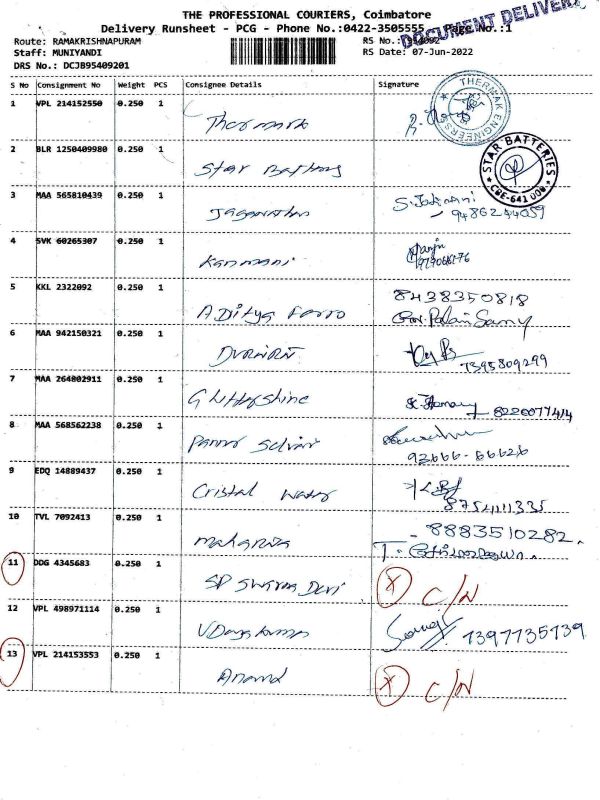 THE PROFESSIONAL COURIERS, Coimbatore
DOCUMENT DELIVERY
Delivery Runsheet - PCG - Phone No.:0422-3505555, Page No.:1
Route: RAMAKRISHNAPURAM
Staff: MUNIYANDI
DRS No.: DCJB95409201
RS No.:
RS Date: 07-Jun-2022
S No Consignment No Weight PCS Consignee Details Signature
1 VPL 214152550 0.250 1 Thermark
THERMAK ENGINEERS
2 BLR 1250409980 0.250 1 Star Battery
STAR BATTERIES
CBE-641 006
3 MAA 565810439 0.250 1 Jaganathan
9486244059
4 SVK 60265307 0.250 1 Kanmani
5 KKL 2322092 0.250 1 Aditya Ferro 8438350818
6 MAA 942150321 0.250 1
7395809299
7 MAA 264802911 0.250 1 Glittershine
8 MAA 568562238 0.250 1
93666-66626
9 EDQ 14889437 0.250 1 Cristal Water
8754111335
10 TVL 7092413 0.250 1 Maharaja 8883510282
11 DDG 4345683 0.250 1 C/N
12 VPL 498971114 0.250 1
7397735739
13 VPL 214153553 0.250 1 Anand C/N